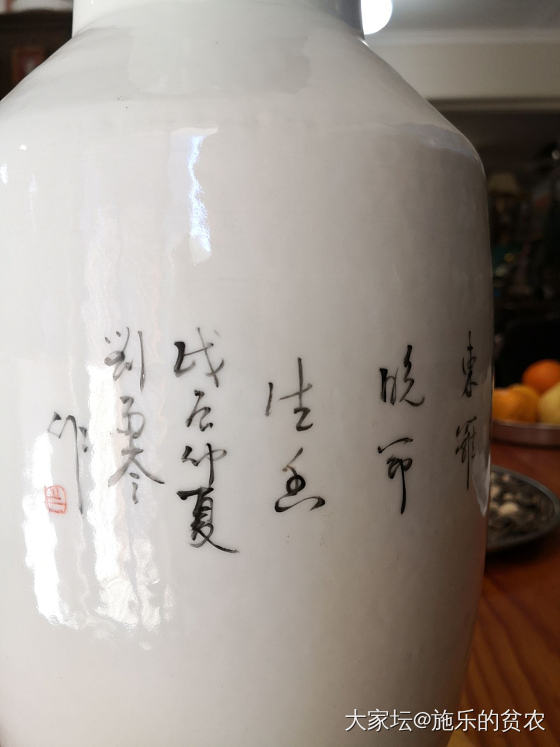 東籬
晚節
佳色
戊辰仲夏
劉雨岑
作
大家坛@施乐的贫农